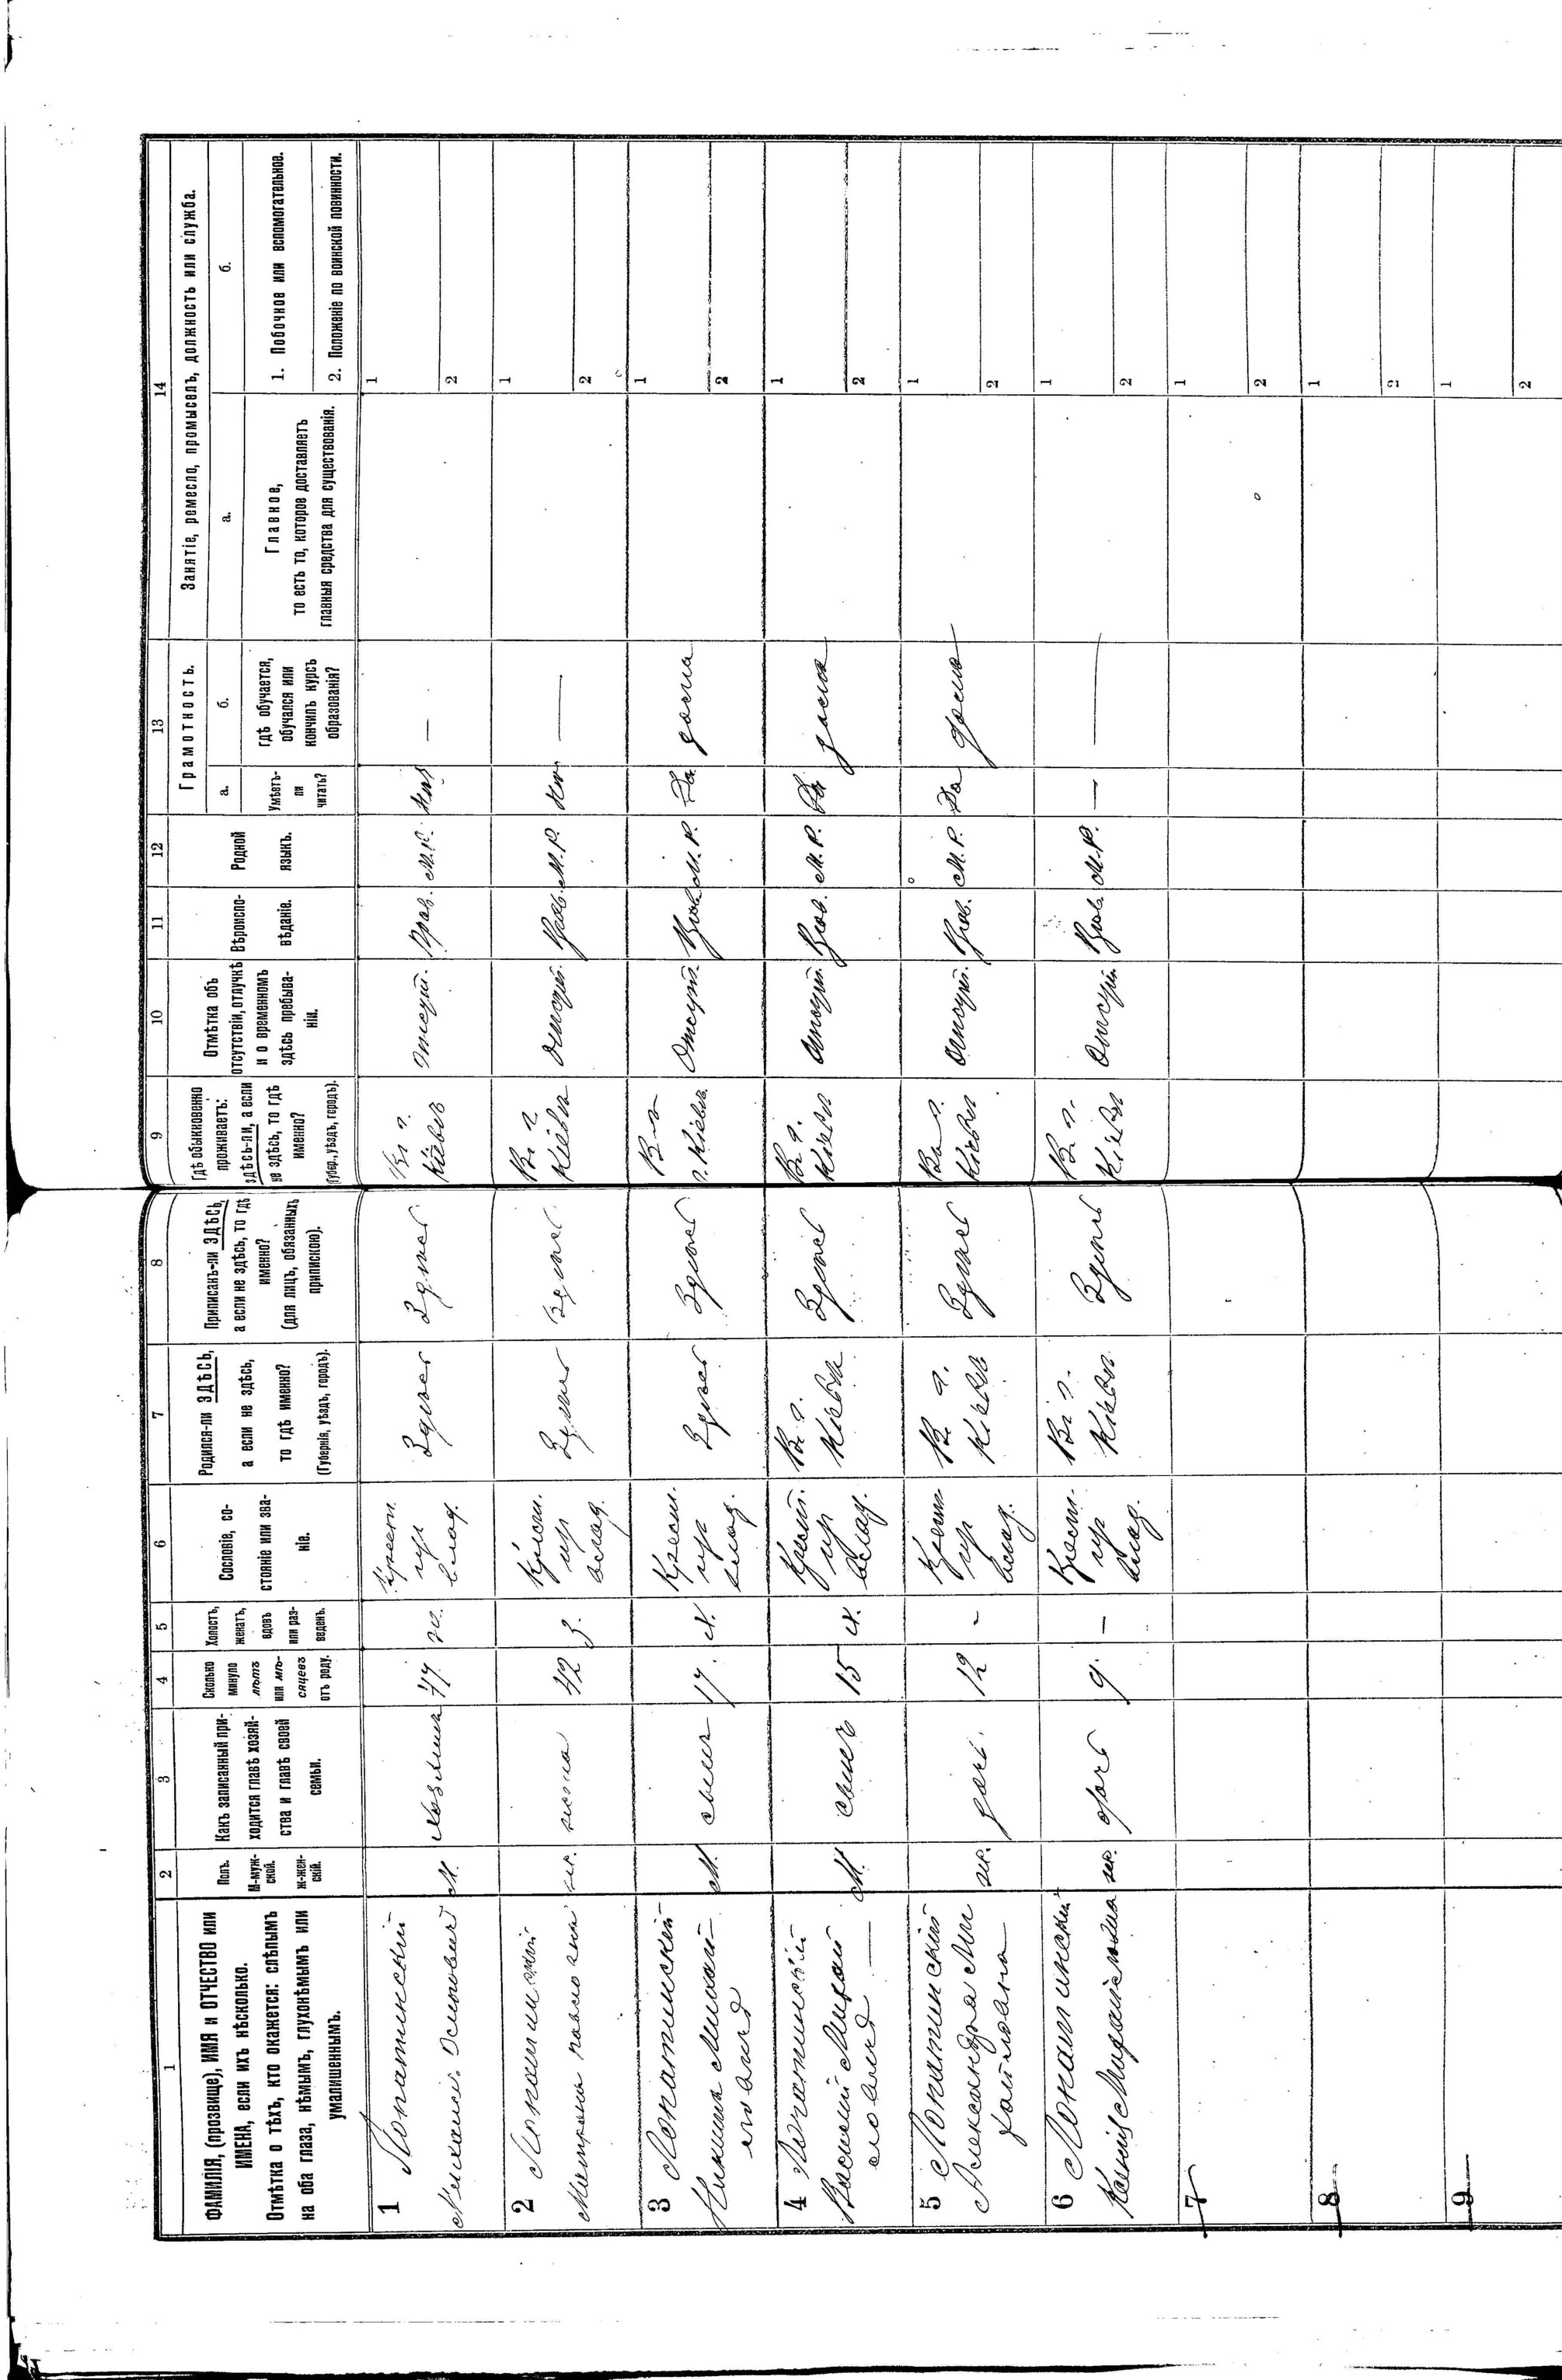 1
ФАМИЛІЯ, (прозвище), ИМЯ и ОТЧЕСТВО или
ИМЕНА, если ихъ нѣсколько.
Отмѣтка о тѣхъ, кто окажется: слѣпымъ
на оба глаза, нѣмымъ, глухонѣмымъ или
умалишеннымъ.
2
Полъ.
М-муж-
ской.
Ж-жен-
скій.
3
Какъ записанный при-
ходится главѣ хозяй-
ства и главѣ своей
семьи.
4
Сколько
минуло
лѣтъ
или мѣ-
сяцевъ
отъ роду.
5
Холостъ,
женатъ,
вдовъ
или раз-
веденъ.
6
Сословіе, со-
стояніе или зва-
ніе.
7
Родился-ли ЗДѢСЬ,
а если не здѣсь,
то гдѣ именно?
(Губернія, уѣздъ, городъ).
8
Приписанъ-ли ЗДѢСЬ,
а если не здѣсь, то гдѣ
именно?
(для лицъ, обязанныхъ
припискою).
9
Гдѣ обыкновенно
проживаетъ:
здѣсь-ли, а если
не здѣсь, то гдѣ
именно?
(Губер., уѣздъ, городъ).
10
Отмѣтка объ
отсутствіи, отлучкѣ
и о временномъ
здѣсь пребыва-
ніи.
11
Вѣроиспо-
вѣданіе.
12
Родной
языкъ.
13
Грамотность.
а.
Умѣетъ-
ли
читать?
б.
гдѣ обучается,
обучался или
кончилъ курсъ
образованія?
14
Занятіе, ремесло, промыселъ, должность или служба.
а.
Главное,
то есть то, которое доставляетъ
главныя средства для существованія.
б.
1. Побочное или вспомогательное.
2. Положеніе по воинской повинности.
1
Лопатинский
Михаил Осипович
М.
хозяин
47
ж.
Крест.
из
влад.
Здесь
Здесь
Въ г.
Кіевѣ
отсут.
Прав.
М.Р.
—
1
2
2
Лопатинский
Матрона Павловна
ж.
жена
42
З.
Крест.
из
влад.
Здесь
Здесь
Въ г.
Кіевѣ
отсут.
Прав.
М.Р.
—
1
2
3
Лопатинский
Никита Михай-
лович
М.
сын
17.
х.
Крест.
из
влад.
Здесь
Здесь
В
г. Кіевѣ
Отсут.
Прав.
М.Р.
Да
дома
1
2
4
Лопатинский
Василий Михай
лович —
М.
сынъ
15
х.
Крест.
из
влад.
Въ г.
Кіевѣ
Здесь
Въ г.
Кіевѣ
отсут.
Прав.
М.Р.
Да
дома
1
2
5
Лопатинский
Александра Ми
хайловна
ж.
дочь.
12
-
Крест
из
влад.
В г.
Кіевѣ
Здесь
Въ г.
Кіевѣ
отсут.
Прав.
М.Р.
Да
дома
1
2
6
Лопатинский
Михайловна
ж.
дочь
9.
-
Крест.
из
влад.
Въ г.
Кіевѣ
Здесь
В г.
Кіевѣ
Отсут
Прав.
М.Р.
—
—
1
2
7
1
2
8
1
2
9
1
2